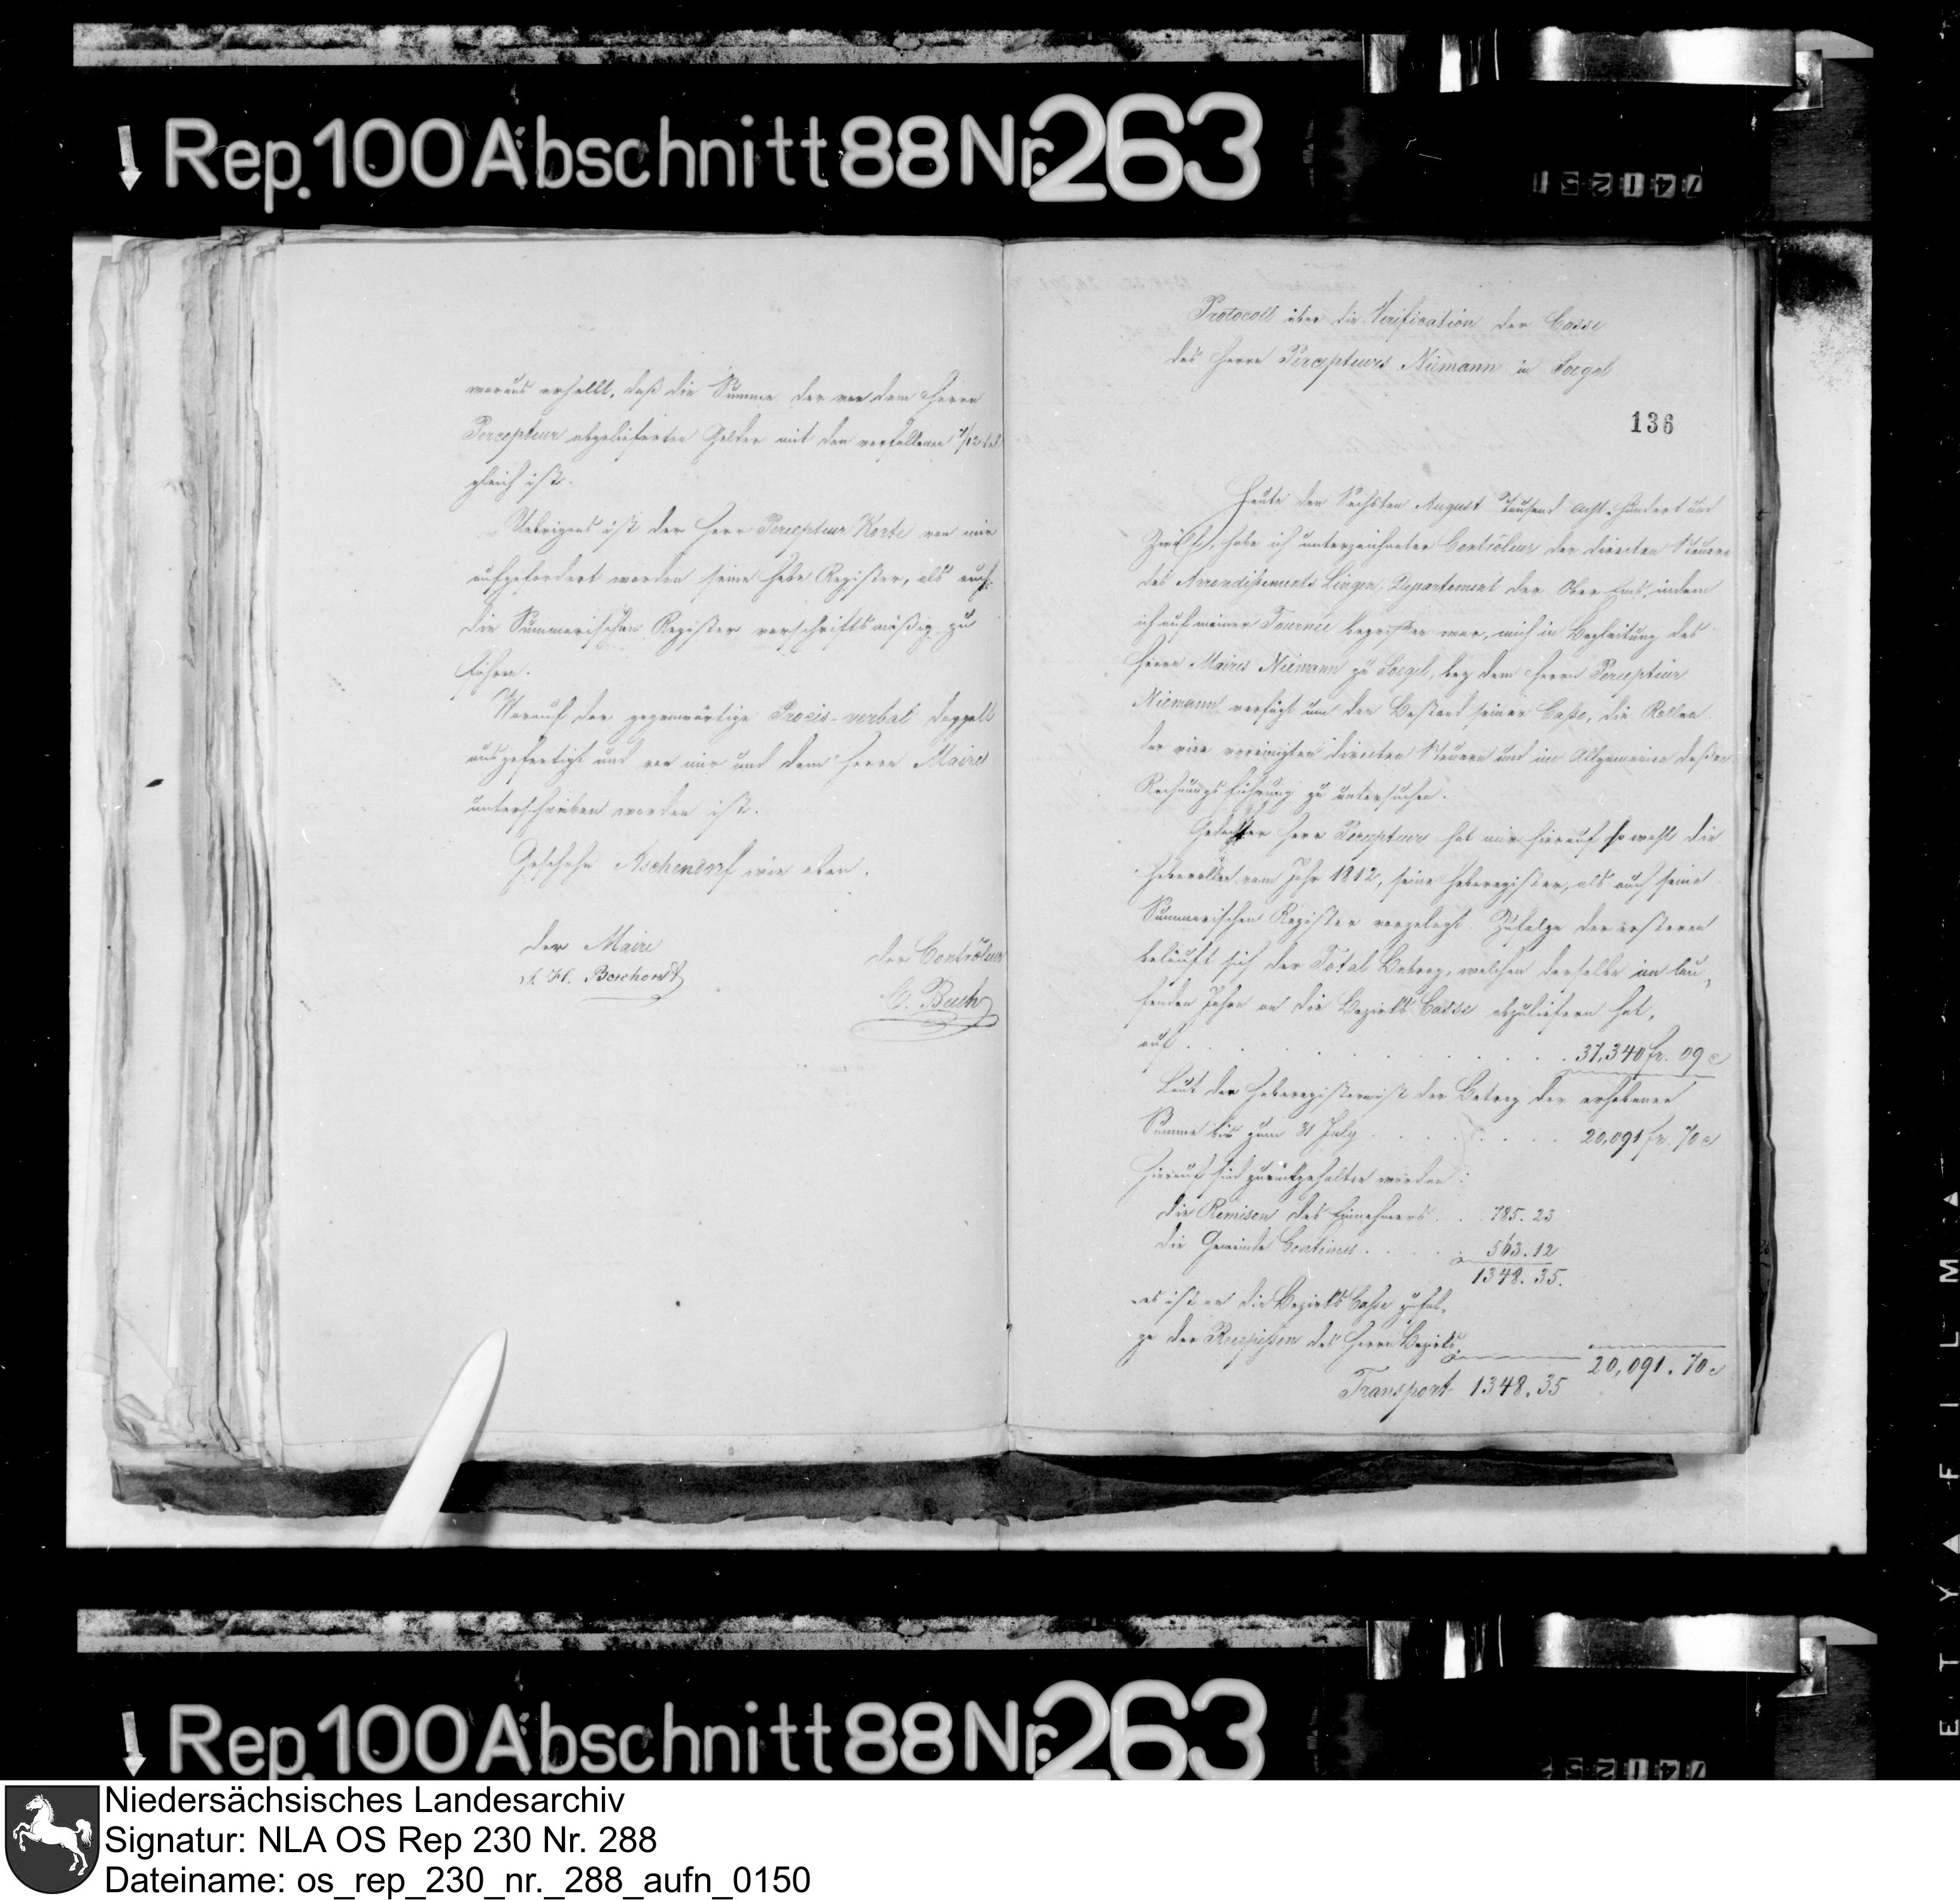 Rep. 100 Abschnitt 88 Nr. 263
741251
woraus erhellt, daß die Summe der von dem Herrn
Percepteur abgelieferten Gelder mit den verfallenen 7/12tel
gleich ist.
Uebrigens ist der Herr Percepteur Korte von mir
aufgefordert worden seine Hebe Register, als auch
die Summarischen Register vorschriftsmäßig zu
führen.
Worauf der gegenwärtige Procès-verbal doppelt
ausgefertigt und von mir und dem Herrn Maire
unterschrieben worden ist.
Geschehn Aschendorf wie oben.
der Maire
der Controleur
Borchord
C. Buch
Protocoll über die Verification der Casse
des Herrn Percepteurs Niemann in Soegel
136
Heute den Sechsten August Tausend Acht-hundert und
Zwölf, habe ich unterzeichneter Controleur der directen Steuern
des Arrondissements Lingen, Departement der Ober Ems, indem
ich auf meiner Tournée begriffen war, mich in Begleitung des
Herrn Maires Niemann zu Soegel, bey dem Herrn Percepteur
Niemann verfügt um den Bestand seiner Casse, die Rollen
der vier vereinigten directen Steuern und im Allgemeinen dessen
Rechnungsführung zu untersuchen.
Gedachter Herr Percepteur hat mir hierauf so wohl die
Heberollen vom Jahr 1812, seine Heberegister, als auch seine
Summarischen Register vorgelegt. Zufolge der ersteren
beläuft sich der Total Betrag, welchen derselbe im lau-
fenden Jahre an die Bezirks Casse abzuliefern hat,
auf . . . . . . . . . . 37,340 fr. 09 c
Laut der Heberegister ist der Betrag der erhobenen
Summe bis zum 31 July . . . . . . 20,091 fr. 70 c
Hierauf sind zurückgehalten worden:
die Remisen des Einnehmers . . 785. 23
die Gemeinde Centimes . . . . . 563. 12
1348. 35.
es ist an die Bezirks Casse zufol-
ge der Recepissen des Herrn Bezirks
20,091. 70 c
Transport 1348. 35
Rep. 100 Abschnitt 88 Nr. 263
Niedersächsisches Landesarchiv
Signatur: NLA OS Rep 230 Nr. 288
Dateiname: os_rep_230_nr._288_aufn_0150